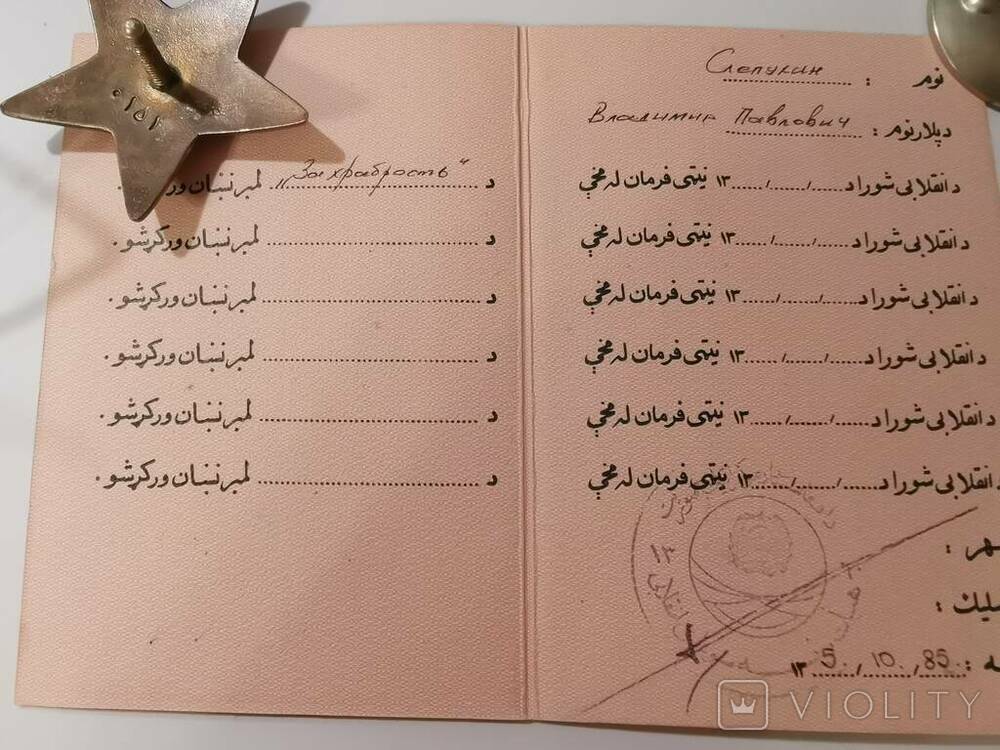 نوم : Слепукин
د پلار نوم : Владимир Павлович
د انقلابی شورا د ....../....../...... ۱۳ نیټې فرمان له مخې
د انقلابی شورا د ....../....../...... ۱۳ نیټې فرمان له مخې
د انقلابی شورا د ....../....../...... ۱۳ نیټې فرمان له مخې
د انقلابی شورا د ....../....../...... ۱۳ نیټې فرمان له مخې
د انقلابی شورا د ....../....../...... ۱۳ نیټې فرمان له مخې
د انقلابی شورا د ....../....../...... ۱۳ نیټې فرمان له مخې
۱۳
: ۱۳ 5./10./85.
د „За храбрость“ لمبر نښان
د ................ لمبر نښان ورکړشو .
د ................ لمبر نښان ورکړشو .
د ................ لمبر نښان ورکړشو .
د ................ لمبر نښان ورکړشو .
د ................ لمبر نښان ورکړشو .
VIOLITY